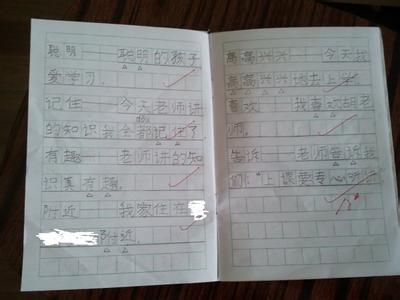 聪明——聪明的孩子
爱学习.
记住——今天老师讲
的知识我全都记住了
有趣——老师讲的知
识真有趣.
附近——我家住在
附近.
高高兴兴——今天我
高高兴兴地去上学.
喜欢——我喜欢胡老
师.
告诉——老师告诉我
们:"上课要专心听讲